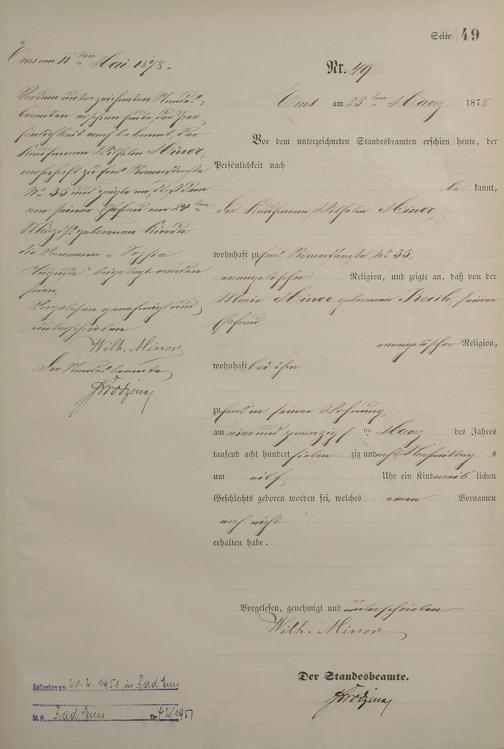 Seite 49
Ems am 11ten Mai 1878.
Vor dem unterzeichneten Standes-
beamten erschien heute, der Per-
sönlichkeit nach bekannt, der
Kaufmann Wilhelm Minor,
wohnhaft zu Ems Römerstraße
No 35 und zeigte an, daß dem
von seiner Ehefrau am 24ten
März geborenen Kinde
die Vornamen " Sophie
beigelegt worden
seien.
Vorgelesen genehmigt und
unterschrieben
Wilh. Minor
Der Standesbeamte
Nr. 49
Ems am 25ten März 1878
Vor dem unterzeichneten Standesbeamten erschien heute, der
Persönlichkeit nach
be kannt,
der Kaufmann Wilhelm Minor,
wohnhaft zu Ems Römerstraße No 35,
evangelischer Religion, und zeigte an, daß von der
Marie Minor geborenen seiner
Ehefrau
evangelischer Religion,
wohnhaft bei ihm,
zu Ems in seiner Wohnung
am vier und zwanzigsten März des Jahres
tausend acht hundert sieben zig und acht Vormittags
um elf Uhr ein Kind weib lichen
Geschlechts geboren worden sei, welches einen Vornamen
noch nicht
erhalten habe.
Vorgelesen, genehmigt und unterschrieben
Wilh. Minor
Der Standesbeamte.
am 21.2.1951 in Bad Ems
St.A. Bad Ems Nr. /1951